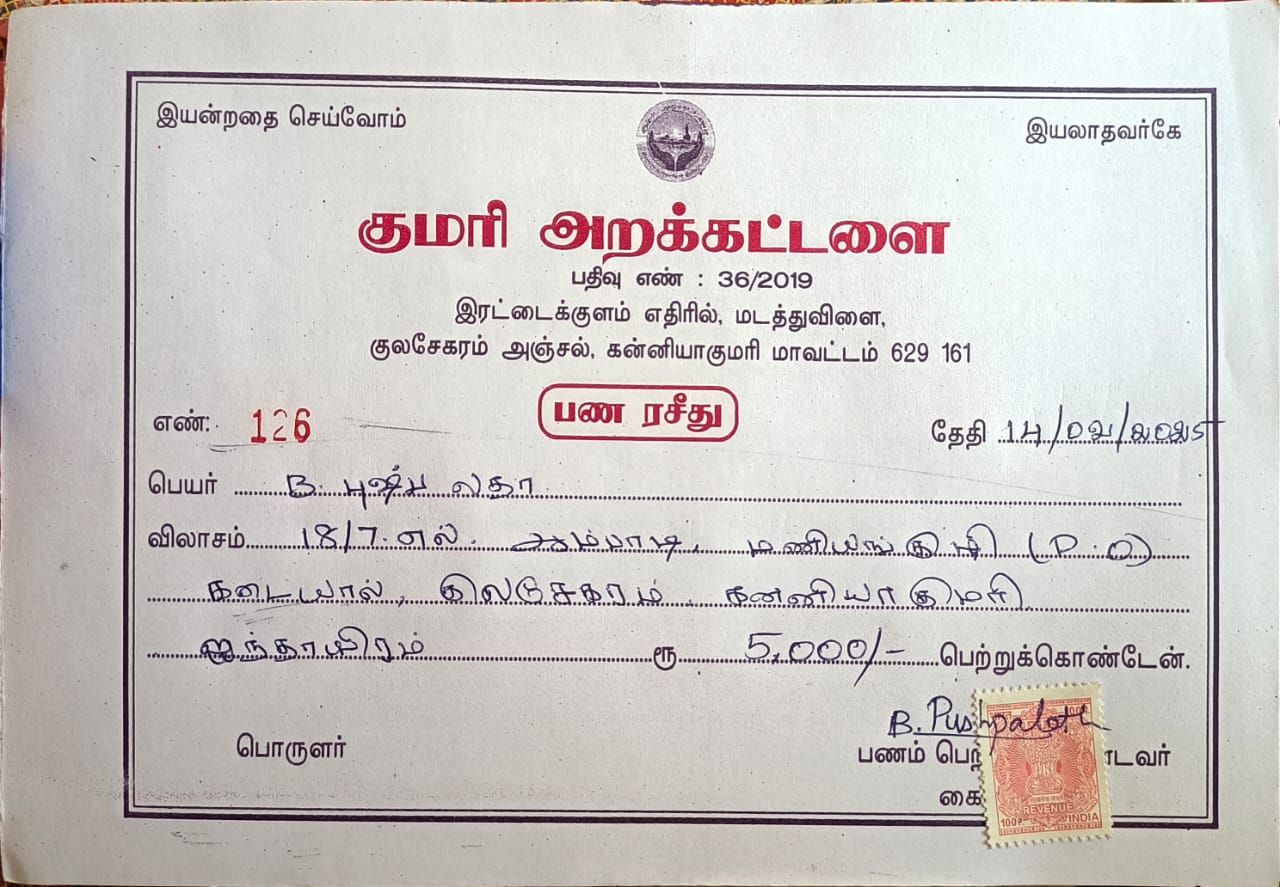 இயன்றதை செய்வோம் இயலாதவர்கே
குமரி அறக்கட்டளை
பதிவு எண் : 36/2019
இரட்டைக்குளம் எதிரில், மடத்துவிளை,
குலசேகரம் அஞ்சல், கன்னியாகுமரி மாவட்டம் 629 161
பண ரசீது
எண்: 126 தேதி 14/02/2025
பெயர் B. புஷ்ப லதா
விலாசம் 18/7.எல். அம்பாடி, மணியங்குழி (P.O)
கடையால், குலசேகரம், கன்னியாகுமரி
ஐந்தாயிரம் ரூ 5,000/- பெற்றுக்கொண்டேன்.
B. Pushpalatha
பொருளர் பணம்
REVENUE
100P. INDIA